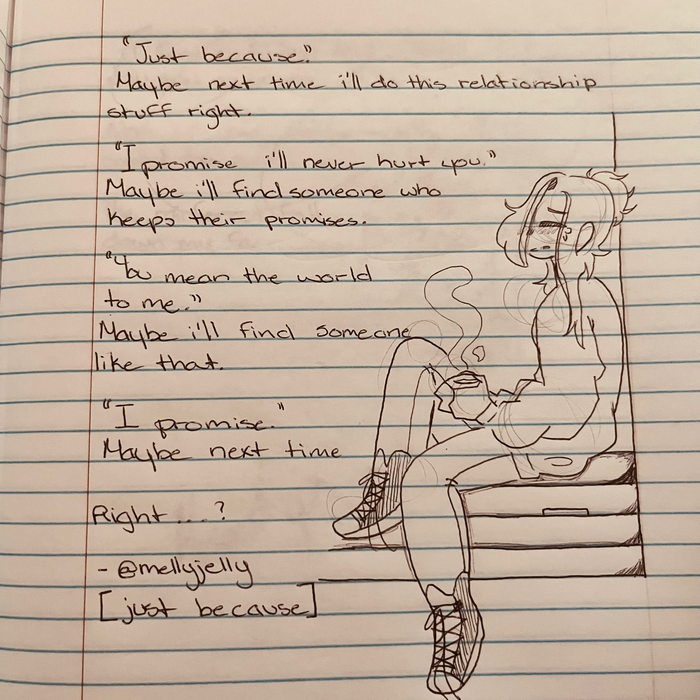 "Just because."
Maybe next time i'll do this relationship
stuff right.
"I promise i'll never hurt you."
Maybe i'll find someone who
keeps their promises.
"You mean the world
to me."
Maybe i'll find someone
like that.
"I promise."
Maybe next time
Right ....?
- @mellyjelly
[just because]